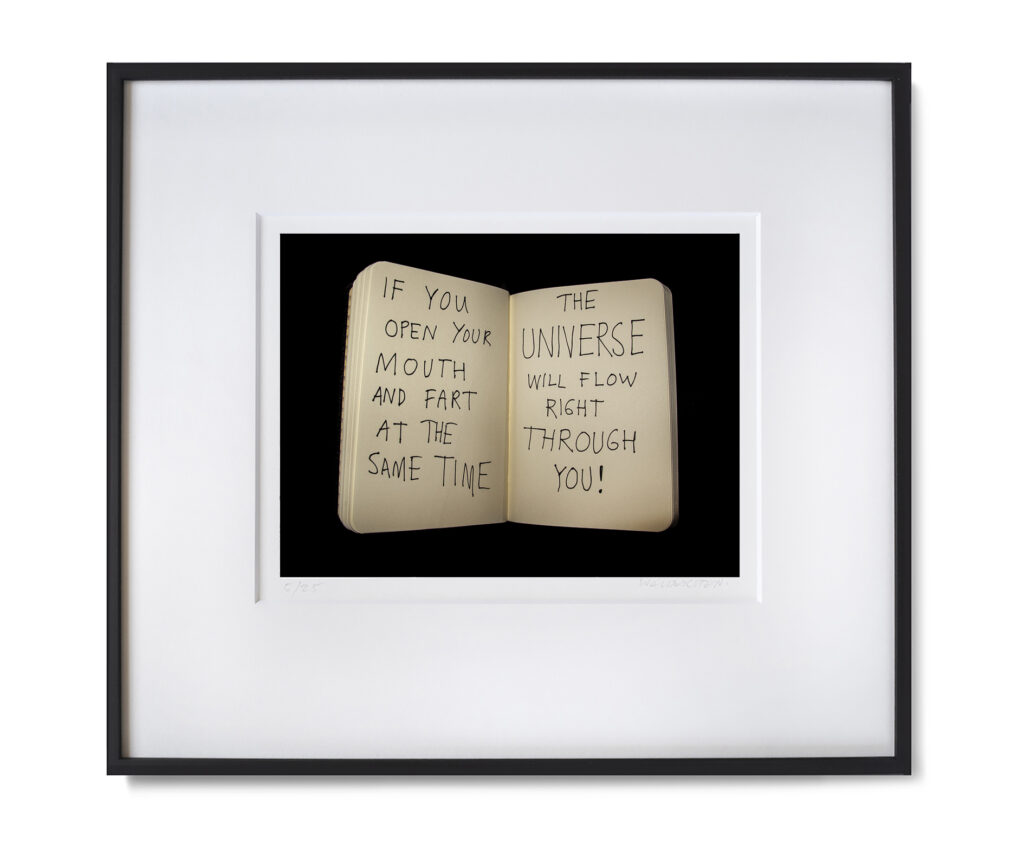 IF YOU
OPEN YOUR
MOUTH
AND FART
AT THE
SAME TIME
THE
UNIVERSE
WILL FLOW
RIGHT
THROUGH
YOU!